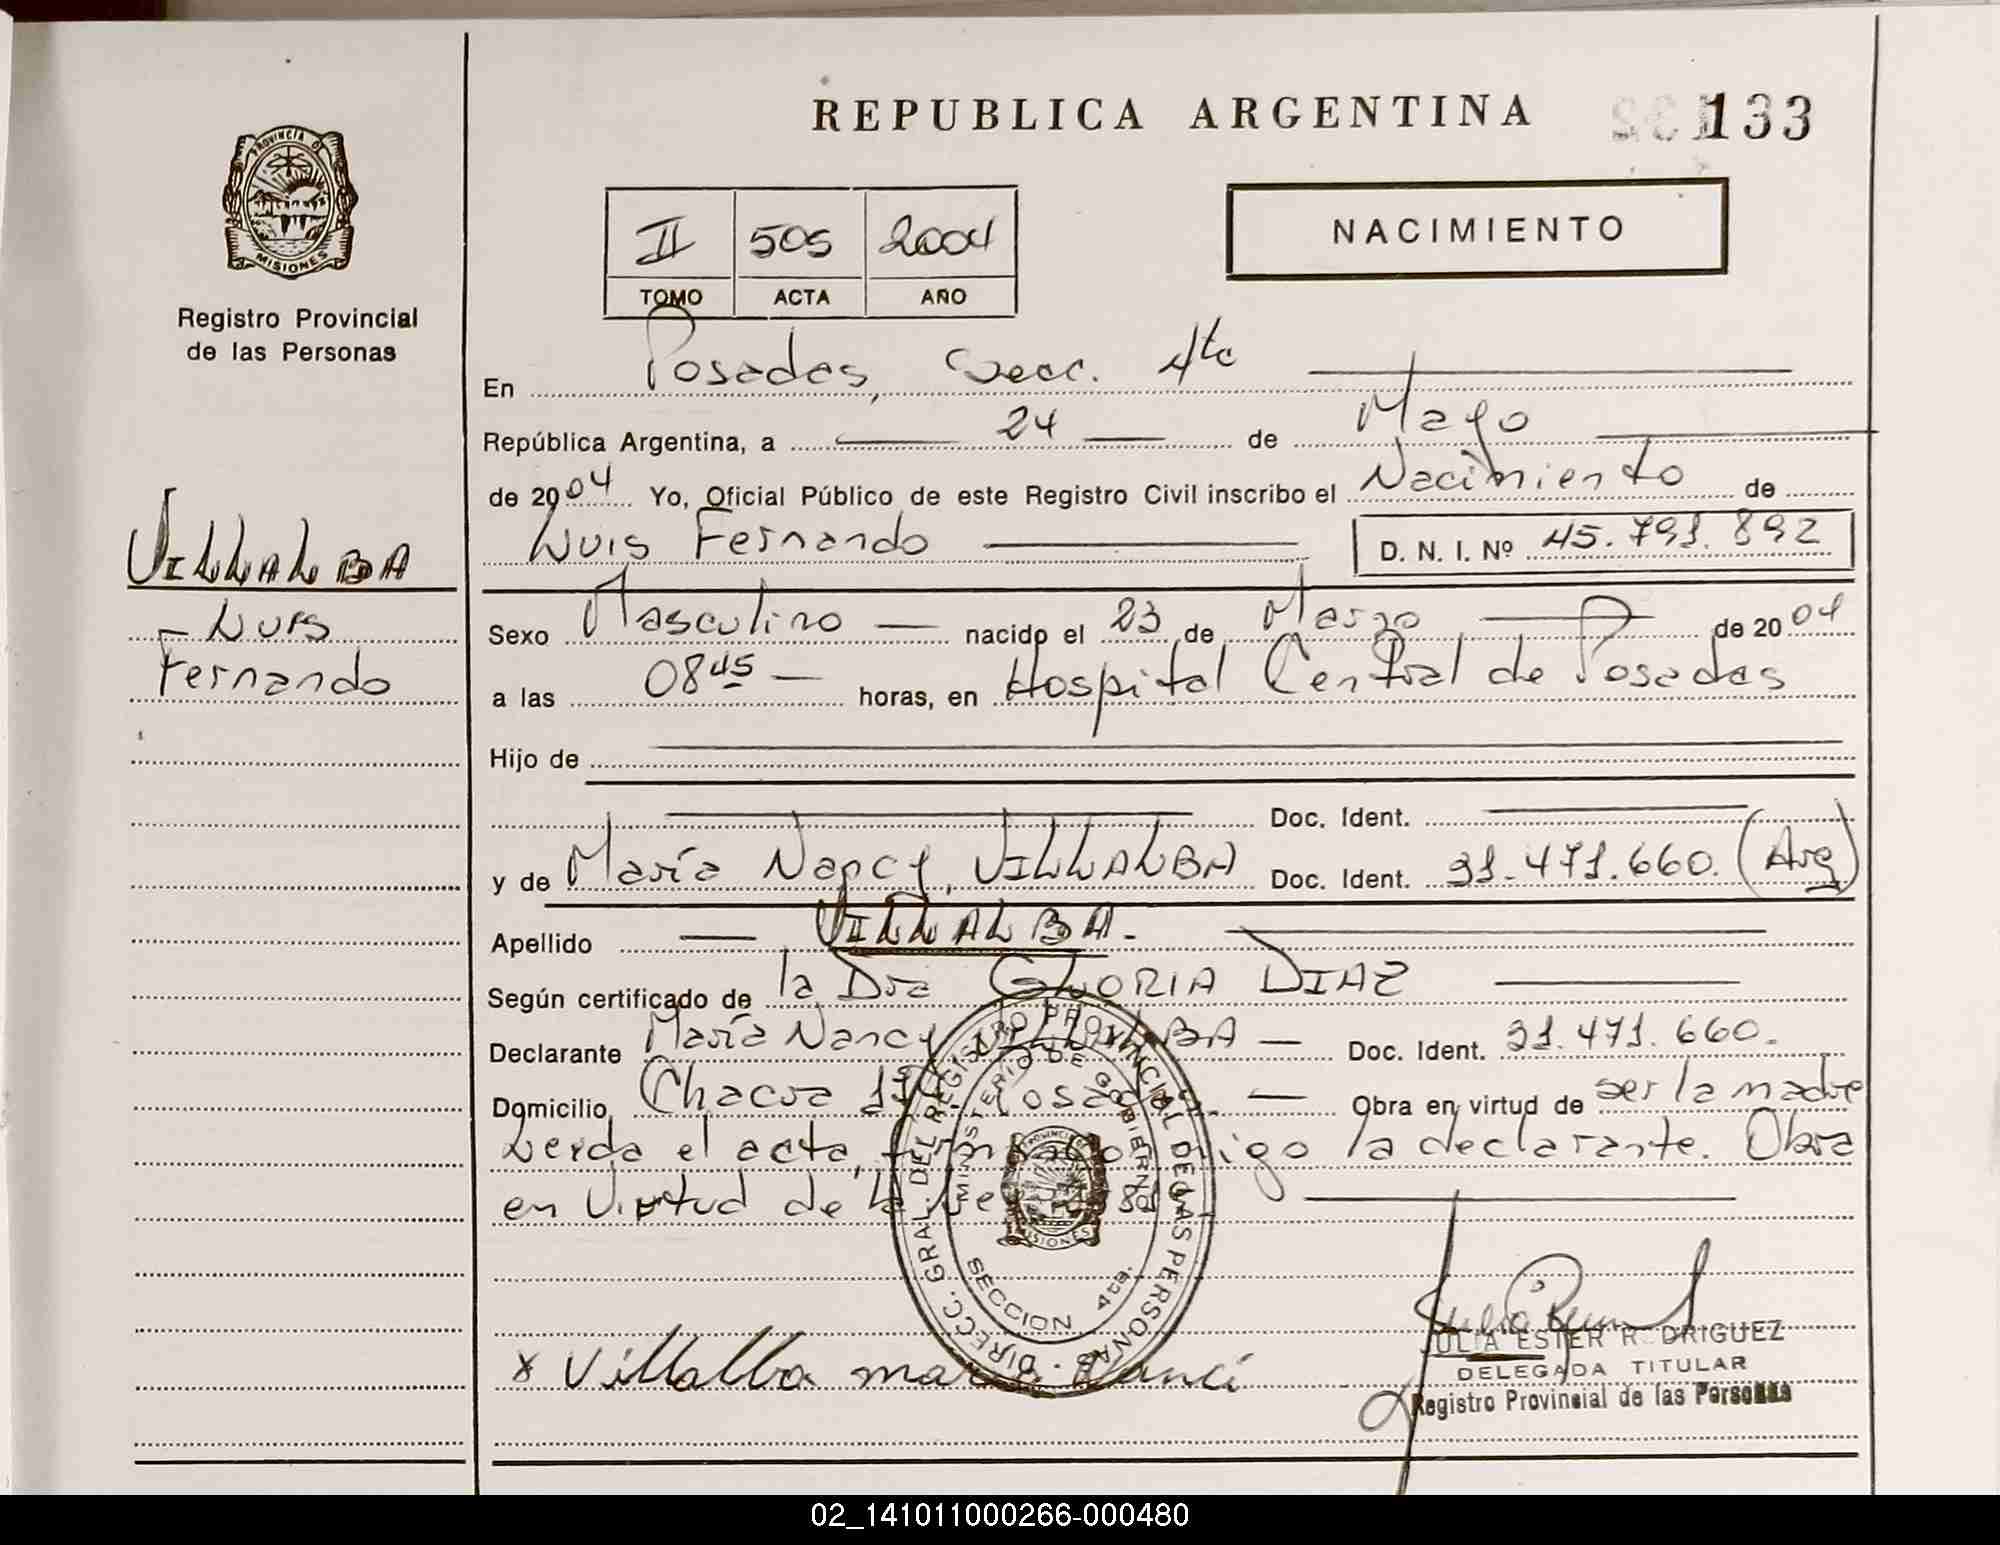 REPUBLICA ARGENTINA
133
PROVINCIA DE
MISIONES
Registro Provincial
de las Personas
II 505 2004
TOMO ACTA AÑO
NACIMIENTO
En Posadas, Secc. 4ta
República Argentina, a 24 de Mayo
de 2004 Yo, Oficial Público de este Registro Civil inscribo el Nacimiento de
Luis Fernando D. N. I. Nº 45.791.892
VILLALBA
Luis
Fernando
Sexo Masculino nacido el 23 de Marzo de 2004
a las 08 45 horas, en Hospital Central de Posadas
Hijo de
Doc. Ident.
y de María Nancy, VILLALBA Doc. Ident. 31.471.660. (Arg)
Apellido VILLALBA.
Según certificado de la Dra GLORIA DIAZ
Declarante María Nancy VILLALBA Doc. Ident. 31.471.660.
Domicilio Chacra Posadas. Obra en virtud de ser la madre
Leída el acta, firma conmigo la declarante. Obra
en Virtud de la Ley
DIRECC. GRAL. DEL REGISTRO PROVINCIAL DE LAS PERSONAS
MINISTERIO DE GOBIERNO
SECCION 4ta.
x Villalba maria Nanci
JULIA ESTER RODRIGUEZ
DELEGADA TITULAR
Registro Provincial de las Personas
02_141011000266-000480